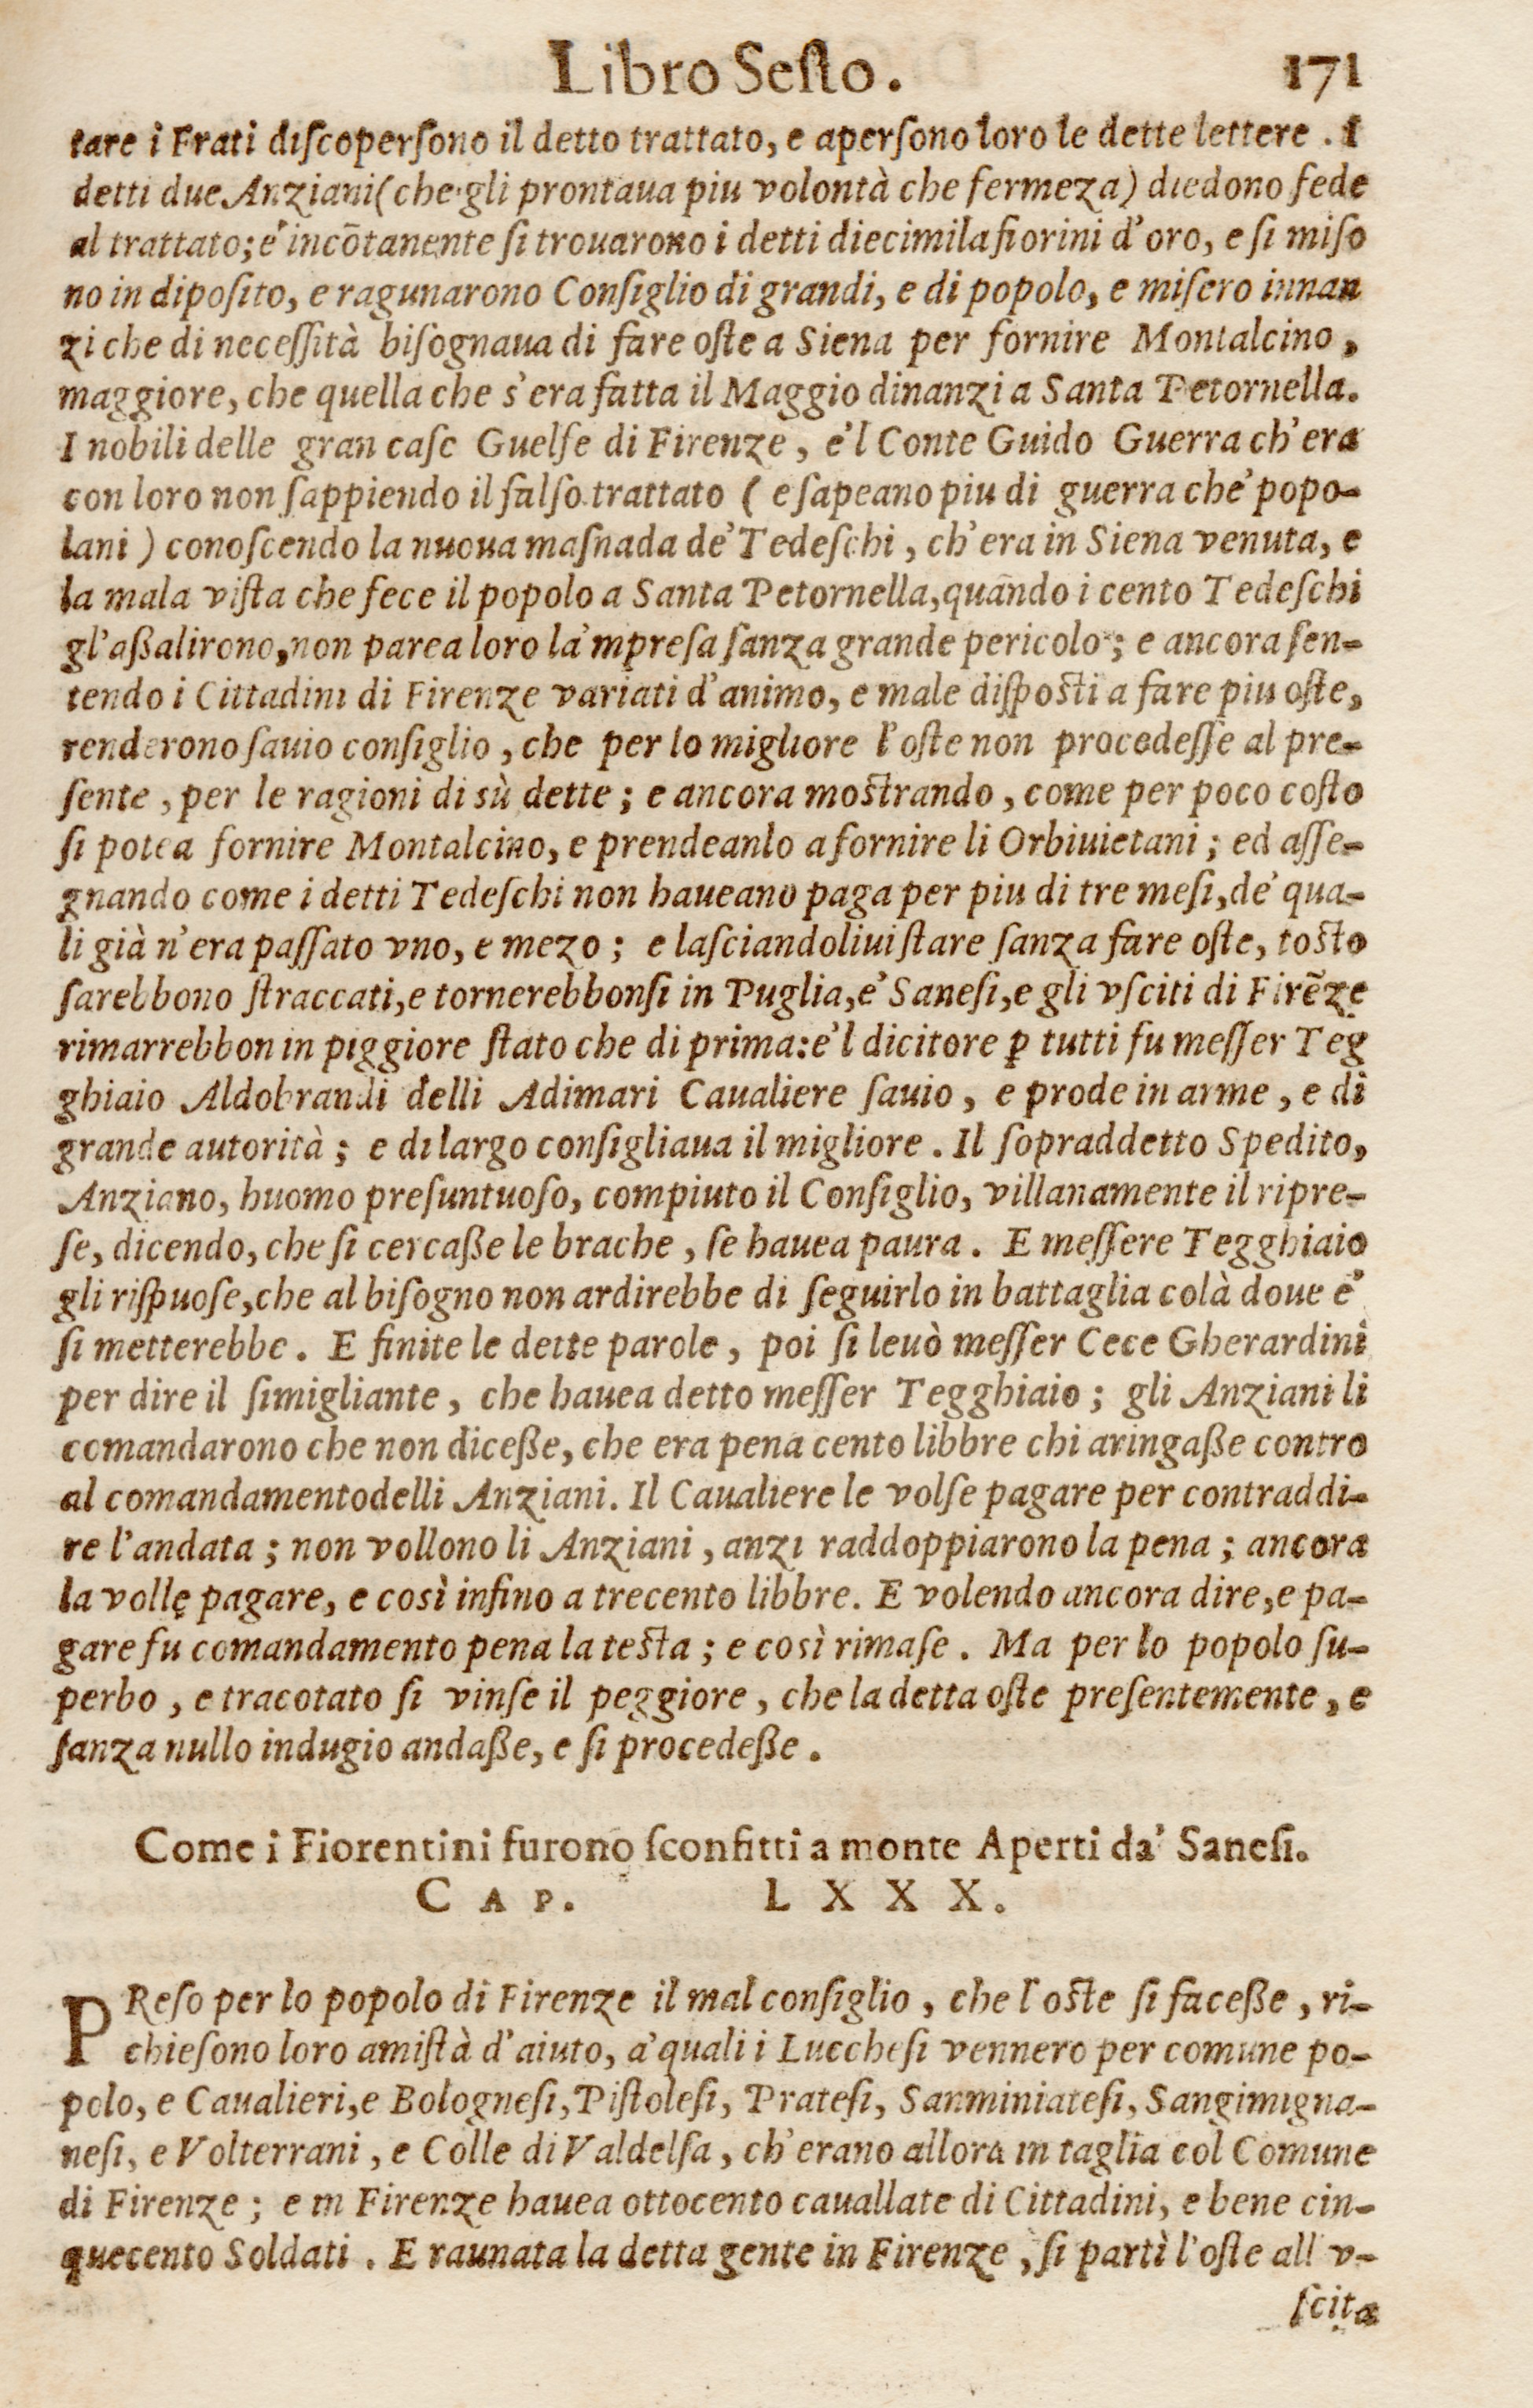 Libro Seſto. 171
tare i Frati diſcoperſono il detto trattato, e aperſono loro le dette lettere. I
detti due Anziani (che gli prontaua piu volontà che fermeza) diedono fede
al trattato; e' incõtanente ſi trouarono i detti diecimila fiorini d'oro, e ſi miſo
no in dipoſito, e ragunarono Conſiglio di grandi, e di popolo, e miſero innan
zi che di neceſſità biſognaua di fare oſte a Siena per fornire Montalcino,
maggiore, che quella che s'era fatta il Maggio dinanzi a Santa Petornella.
I nobili delle gran caſe Guelfe di Firenze, e'l Conte Guido Guerra ch'era
con loro non ſappiendo il falſo trattato (e ſapeano piu di guerra che' popo-
lani) conoſcendo la nuoua maſnada de' Tedeſchi, ch'era in Siena venuta, e
la mala viſta che fece il popolo a Santa Petornella, quando i cento Tedeſchi
gl'aßalirono, non parea loro la'mpreſa ſanza grande pericolo; e ancora ſen-
tendo i Cittadini di Firenze variati d'animo, e male diſpoſti a fare piu oſte,
renderono ſauio conſiglio, che per lo migliore l'oſte non procedeſſe al pre-
ſente, per le ragioni di sù dette; e ancora moſtrando, come per poco coſto
ſi potea fornire Montalcino, e prendeanlo a fornire li Orbiuietani; ed aſſe-
gnando come i detti Tedeſchi non haueano paga per piu di tre meſi, de' qua-
li già n'era paſſato vno, e mezo; e laſciandoliui ſtare ſanza fare oſte, toſto
ſarebbono ſtraccati, e tornerebbonſi in Puglia, e' Saneſi, e gli vſciti di Firẽze
rimarrebbon in piggiore ſtato che di prima: e'l dicitore ꝑ tutti fu meſſer Teg
ghiaio Aldobrandi delli Adimari Caualiere ſauio, e prode in arme, e di
grande autorità; e di largo conſigliaua il migliore. Il ſopraddetto Spedito,
Anziano, huomo preſuntuoſo, compiuto il Conſiglio, villanamente il ripre-
ſe, dicendo, che ſi cercaße le brache, ſe hauea paura. E meſſere Tegghiaio
gli riſpuoſe, che al biſogno non ardirebbe di ſeguirlo in battaglia colà doue e'
ſi metterebbe. E finite le dette parole, poi ſi leuò meſſer Cece Gherardini
per dire il ſimigliante, che hauea detto meſſer Tegghiaio; gli Anziani li
comandarono che non diceße, che era pena cento libbre chi aringaße contro
al comandamento delli Anziani. Il Caualiere le volſe pagare per contraddi-
re l'andata; non vollono li Anziani, anzi raddoppiarono la pena; ancora
la volle pagare, e così infino a trecento libbre. E volendo ancora dire, e pa-
gare fu comandamento pena la teſta; e così rimaſe. Ma per lo popolo ſu-
perbo, e tracotato ſi vinſe il peggiore, che la detta oſte preſentemente, e
ſanza nullo indugio andaße, e ſi procedeße.
Come i Fiorentini furono ſconfitti a monte Aperti da' Saneſi.
CAP. LXXX.
PReſo per lo popolo di Firenze il mal conſiglio, che l'oſte ſi faceße, ri-
chieſono loro amiſtà d'aiuto, a' quali i Luccheſi vennero per comune po-
polo, e Caualieri, e Bologneſi, Piſtoleſi, Prateſi, Sanminiateſi, Sangimigna-
neſi, e Volterrani, e Colle di Valdelſa, ch'erano allora in taglia col Comune
di Firenze; e in Firenze hauea ottocento cauallate di Cittadini, e bene cin-
quecento Soldati. E raunata la detta gente in Firenze, ſi partì l'oſte all v-
ſcita